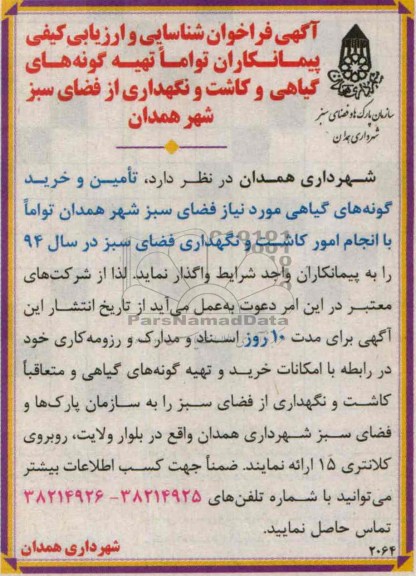 آگهی فراخوان شناسایی و ارزیابی کیفی
پیمانکاران تواماً تهیه گونه‌های
گیاهی و کاشت و نگهداری از فضای سبز
شهر همدان
سازمان پارک‌ها و فضای سبز
شهرداری همدان
شهرداری همدان در نظر دارد، تأمین و خرید
گونه‌های گیاهی مورد نیاز فضای سبز شهر همدان تواماً
با انجام امور کاشت و نگهداری فضای سبز در سال ۹۴
را به پیمانکاران واجد شرایط واگذار نماید. لذا از شرکت‌های
معتبر در این امر دعوت به‌عمل می‌آید از تاریخ انتشار این
ParsNamadData
آگهی برای مدت ۱۰ روز اسناد و مدارک و رزومه‌کاری خود
در رابطه با امکانات خرید و تهیه گونه‌های گیاهی و متعاقباً
کاشت و نگهداری از فضای سبز را به سازمان پارک‌ها و
فضای سبز شهرداری همدان واقع در بلوار ولایت، روبروی
کلانتری ۱۵ ارائه نمایند. ضمناً جهت کسب اطلاعات بیشتر
می‌توانید با شماره تلفن‌های ۳۸۲۱۴۹۲۵- ۳۸۲۱۴۹۲۶
تماس حاصل نمایید.
۲۰۶۴ شهرداری همدان